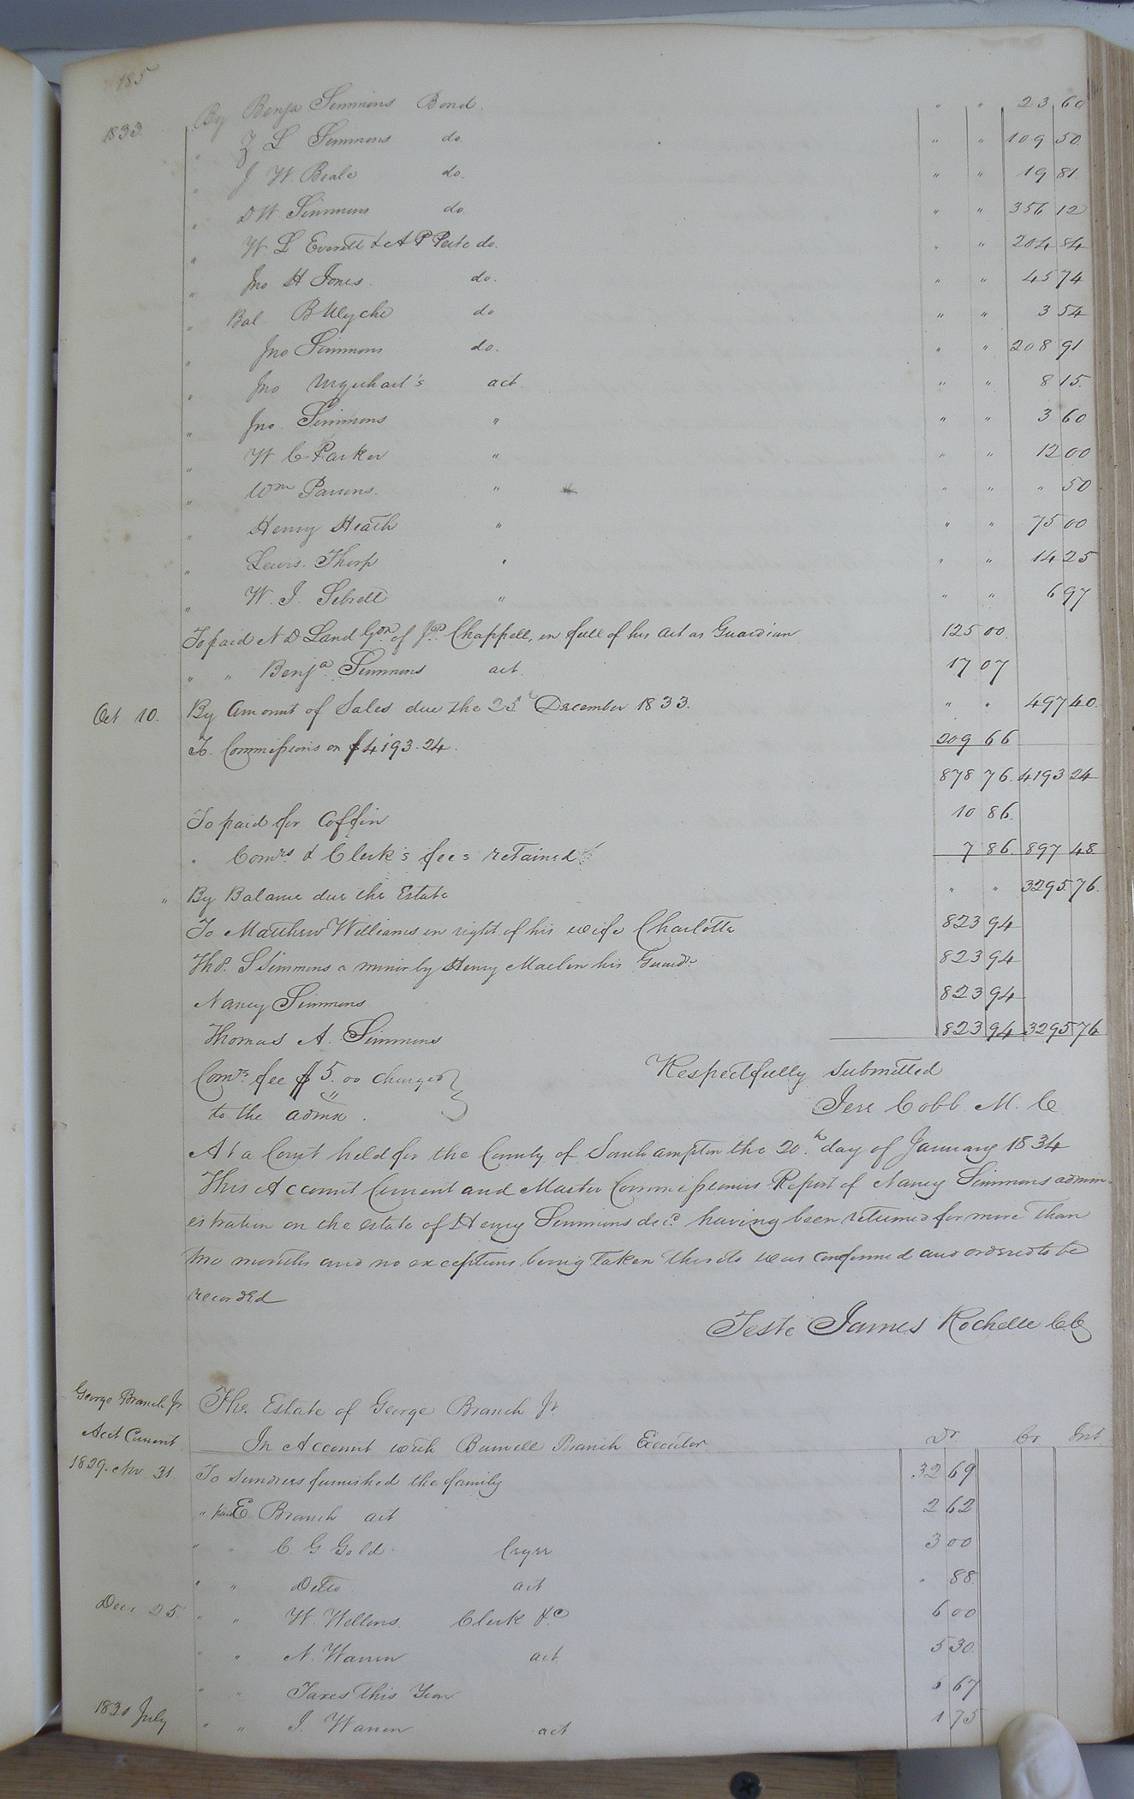 185
1833 By Benja Simmons Bond " " 23 60
" Z L Simmons do " " 109 50
" J W Beale do. " " 19 81
" D W Simmons do " " 356 12
" W L Everett & A P Peete do. " " 204 84
" Jno H Jones do. " " 45 74
" Bal B Wyche do " " 3 54
" Jno Simmons do. " " 208 91
" Jno Urquhart's act " " 8 15
" Jno Simmons " " " 3 60
" W C Parker " " " 12 00
" Wm Parsons " " " " 50
" Henry Heath " " " 75 00
" Lewis Thorp " " " 14 25
" W. J. Sebrell " " " 6 97
To paid N D Land Gdn of Chappell, in full of his act as Guardian 125 00
" " Benja Simmons act 17 07
Oct 10. By Amount of Sales due the 25th December 1833. " " 497 40
To Commissions on $4193.24 209 66
878 76 4193 24
To paid for Coffin 10 86
" Comrs & Clerk's fees retained 7 86 897 48
" By Balance due the Estate " " 3295 76
To Matthew Williams in right of his wife Charlotte 823 94
Thos. S Simmons a minor by Henry Maclin his Guard. 823 94
Nancy Simmons 823 94
Thomas A. Simmons 823 94 3295 76
Comrs fee $5.00 charged Respectfully Submitted
to the admx. Jere Cobb M. C
At a Court held for the County of Southampton the 20th day of January 1834
This Account Current and Master Commissioners Report of Nancy Simmons admin-
istratrix on the estate of Henry Simmons decd. having been returned for more than
two months and no exceptions being taken thereto was confirmed and ordered to be
recorded
Teste James Rochelle CC
George Branch Jr. The Estate of George Branch Jr
Acct Current In Account with Burwell Branch Executor Dr Cr Int
1829. Nov 31 To Sundries furnished the family 32 69
" paid E Branch act 2 62
" " C G Gold Cryer 3 00
" " Ditto act " 88
Decr 25 " " W. Wellons Clerk &c 6 00
" " N. Warren act 5 30
" " Taxes This Year 67
1830 July " " J. Warren act 1 75